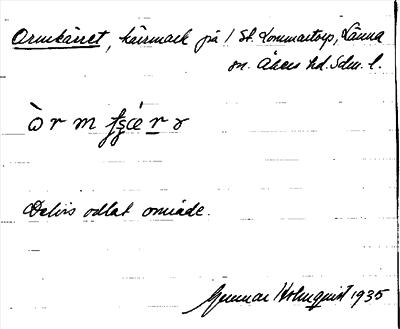 Ormkärret, kärrmark på / St. Lommartorp, Länna
sn. Åkers hd. Sdm. l.
Delvis odlat område.
Gunnar Holmquist 1935